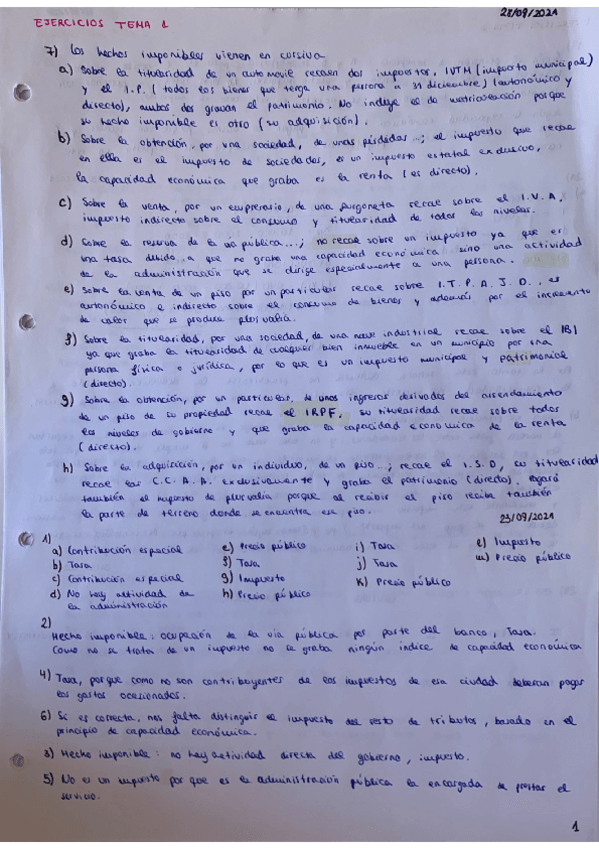 27/09/2021
EJERCICIOS TEMA 1
7) Los hechos imponibles vienen en cursiva
a) Sobre la titularidad de un automóvil recaen dos impuestos, IVTM (impuesto municipal)
y el I.P. (todos los bienes que tenga una persona a 31 diciembre) (autonómico y
directo), ambos dos gravan el patrimonio. No incluye el de matriculación porque
su hecho imponible es otro (su adquisición).
b) Sobre la obtención, por una sociedad, de unas pérdidas...; el impuesto que recae
en ella es el impuesto de sociedades, es un impuesto estatal exclusivo,
la capacidad económica que graba es la renta (es directo).
c) Sobre la venta, por un empresario, de una furgoneta recae sobre el I.V.A,
impuesto indirecto sobre el consumo y titularidad de todos los niveles.
d) Sobre la reserva de la vía pública...; no recae sobre un impuesto ya que es
una tasa debido a que no graba una capacidad económica sino una actividad
de la administración que se dirige especialmente a una persona.
e) Sobre la venta de un piso por un particular recae sobre I.T.P.A.J.D., es
autonómico e indirecto sobre el consumo de bienes y además por el incremento
de valor que se produce plusvalía.
f) Sobre la titularidad, por una sociedad, de una nave industrial recae sobre el IBI
ya que graba la titularidad de cualquier bien inmueble en un municipio por una
persona física o jurídica, por lo que es un impuesto municipal y patrimonial
(directo).
g) Sobre la obtención, por un particular, de unos ingresos derivados del arrendamiento
de un piso de su propiedad recae el IRPF, su titularidad recae sobre todos
los niveles de gobierno y que graba la capacidad económica de la renta
(directo).
h) Sobre la adquisición, por un individuo, de un piso...; recae el I.S.D, su titularidad
recae las C.C.A.A. exclusivamente y graba el patrimonio (directo). Pagará
también el impuesto de plusvalía porque al recibir el piso recibe también
la parte de terreno donde se encuentra ese piso.
23/09/2021
1)
a) Contribución especial e) Precio público i) Tasa l) Impuesto
b) Tasa f) Tasa j) Tasa m) Precio público
c) Contribución especial g) Impuesto k) Precio público
d) No hay actividad de h) Precio público
la administración
2)
Hecho imponible: ocupación de la vía pública por parte del banco, Tasa.
Como no se trata de un impuesto no se graba ningún índice de capacidad económica
4) Tasa, porque como no son contribuyentes de los impuestos de esa ciudad deberán pagar
los gastos ocasionados.
6) Si es correcta, nos falta distinguir el impuesto del resto de tributos, basado en el
principio de capacidad económica.
3) Hecho imponible: no hay actividad directa del gobierno, impuesto.
5) No es un impuesto por que es la administración pública la encargada de prestar el
servicio.
1